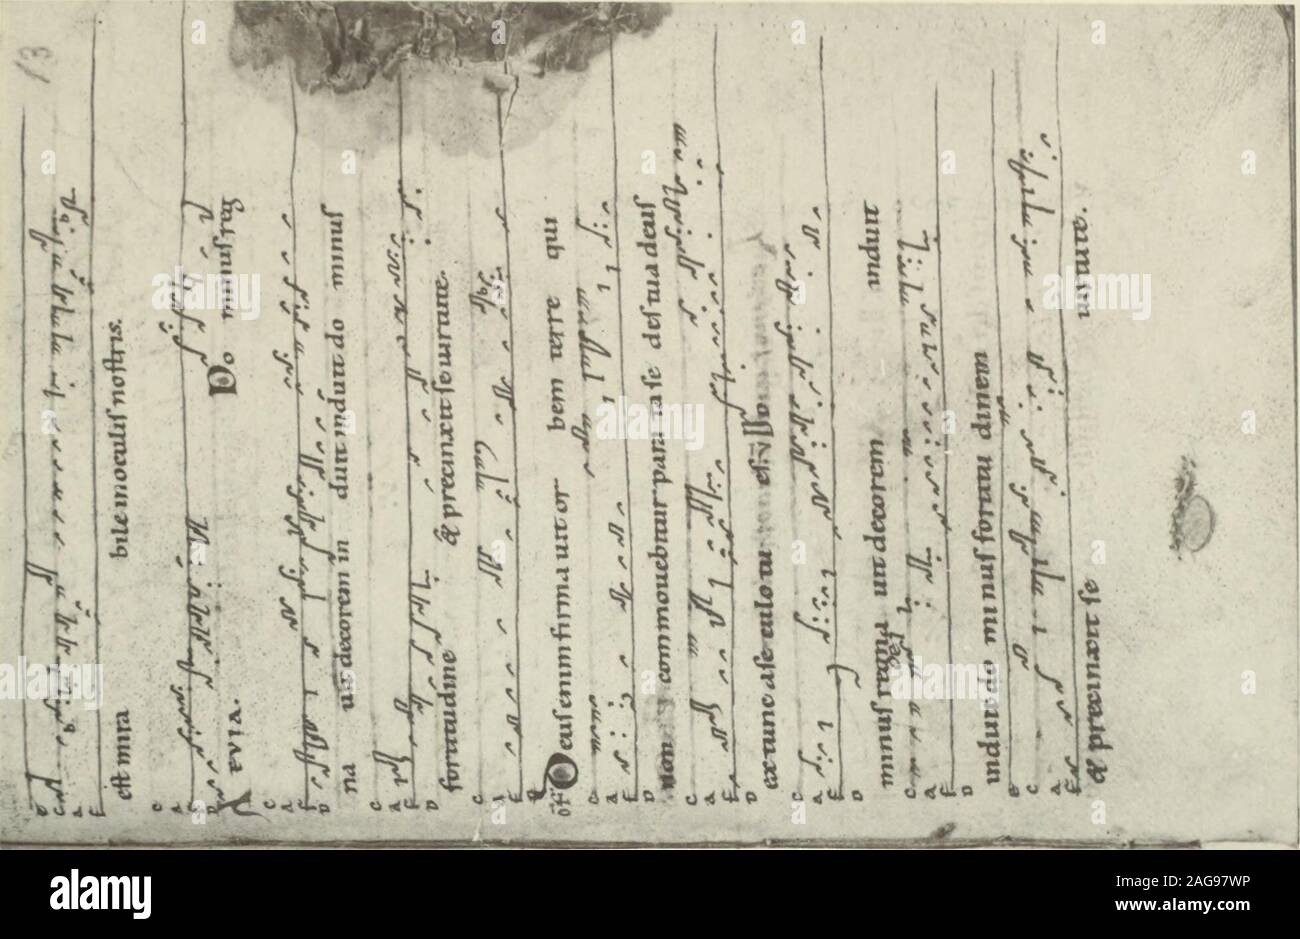 13
est mira bile in oculis nostris.
A EVIA. Do minus reg
na uit decorem in duit induit do minus
fortitudine & precinxit se uirtute.
OF Deus enim firma uit or bem terre qui
non commouebitur para ta se des tua deus
ex tunc a se culo tu es. V
minus regna uit decorem induit
induit do mi nus fortitu dinem
& precinxit se uirtute.
alamy
Image ID: 2AG97WP
www.alamy.com